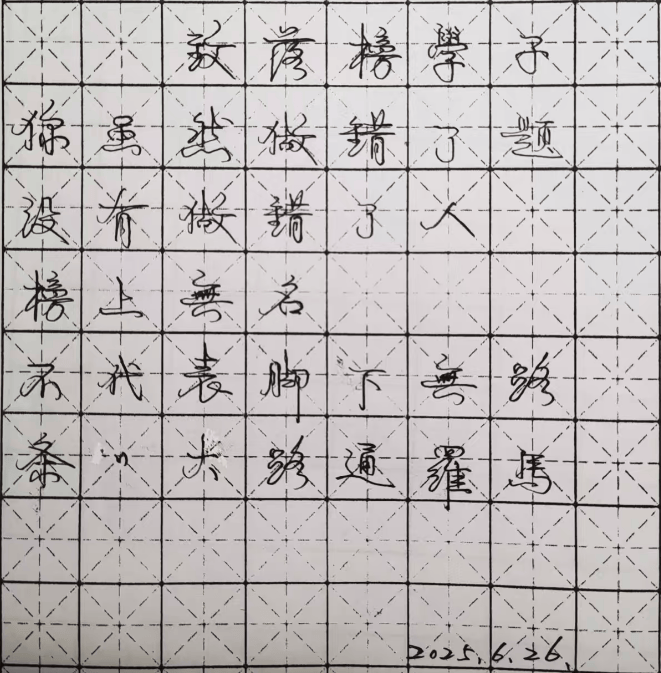 致落榜學子
你虽然做錯了题
没有做錯了人
榜上無名
不代表脚下無路
条〃大路通羅馬
2025.6.26.